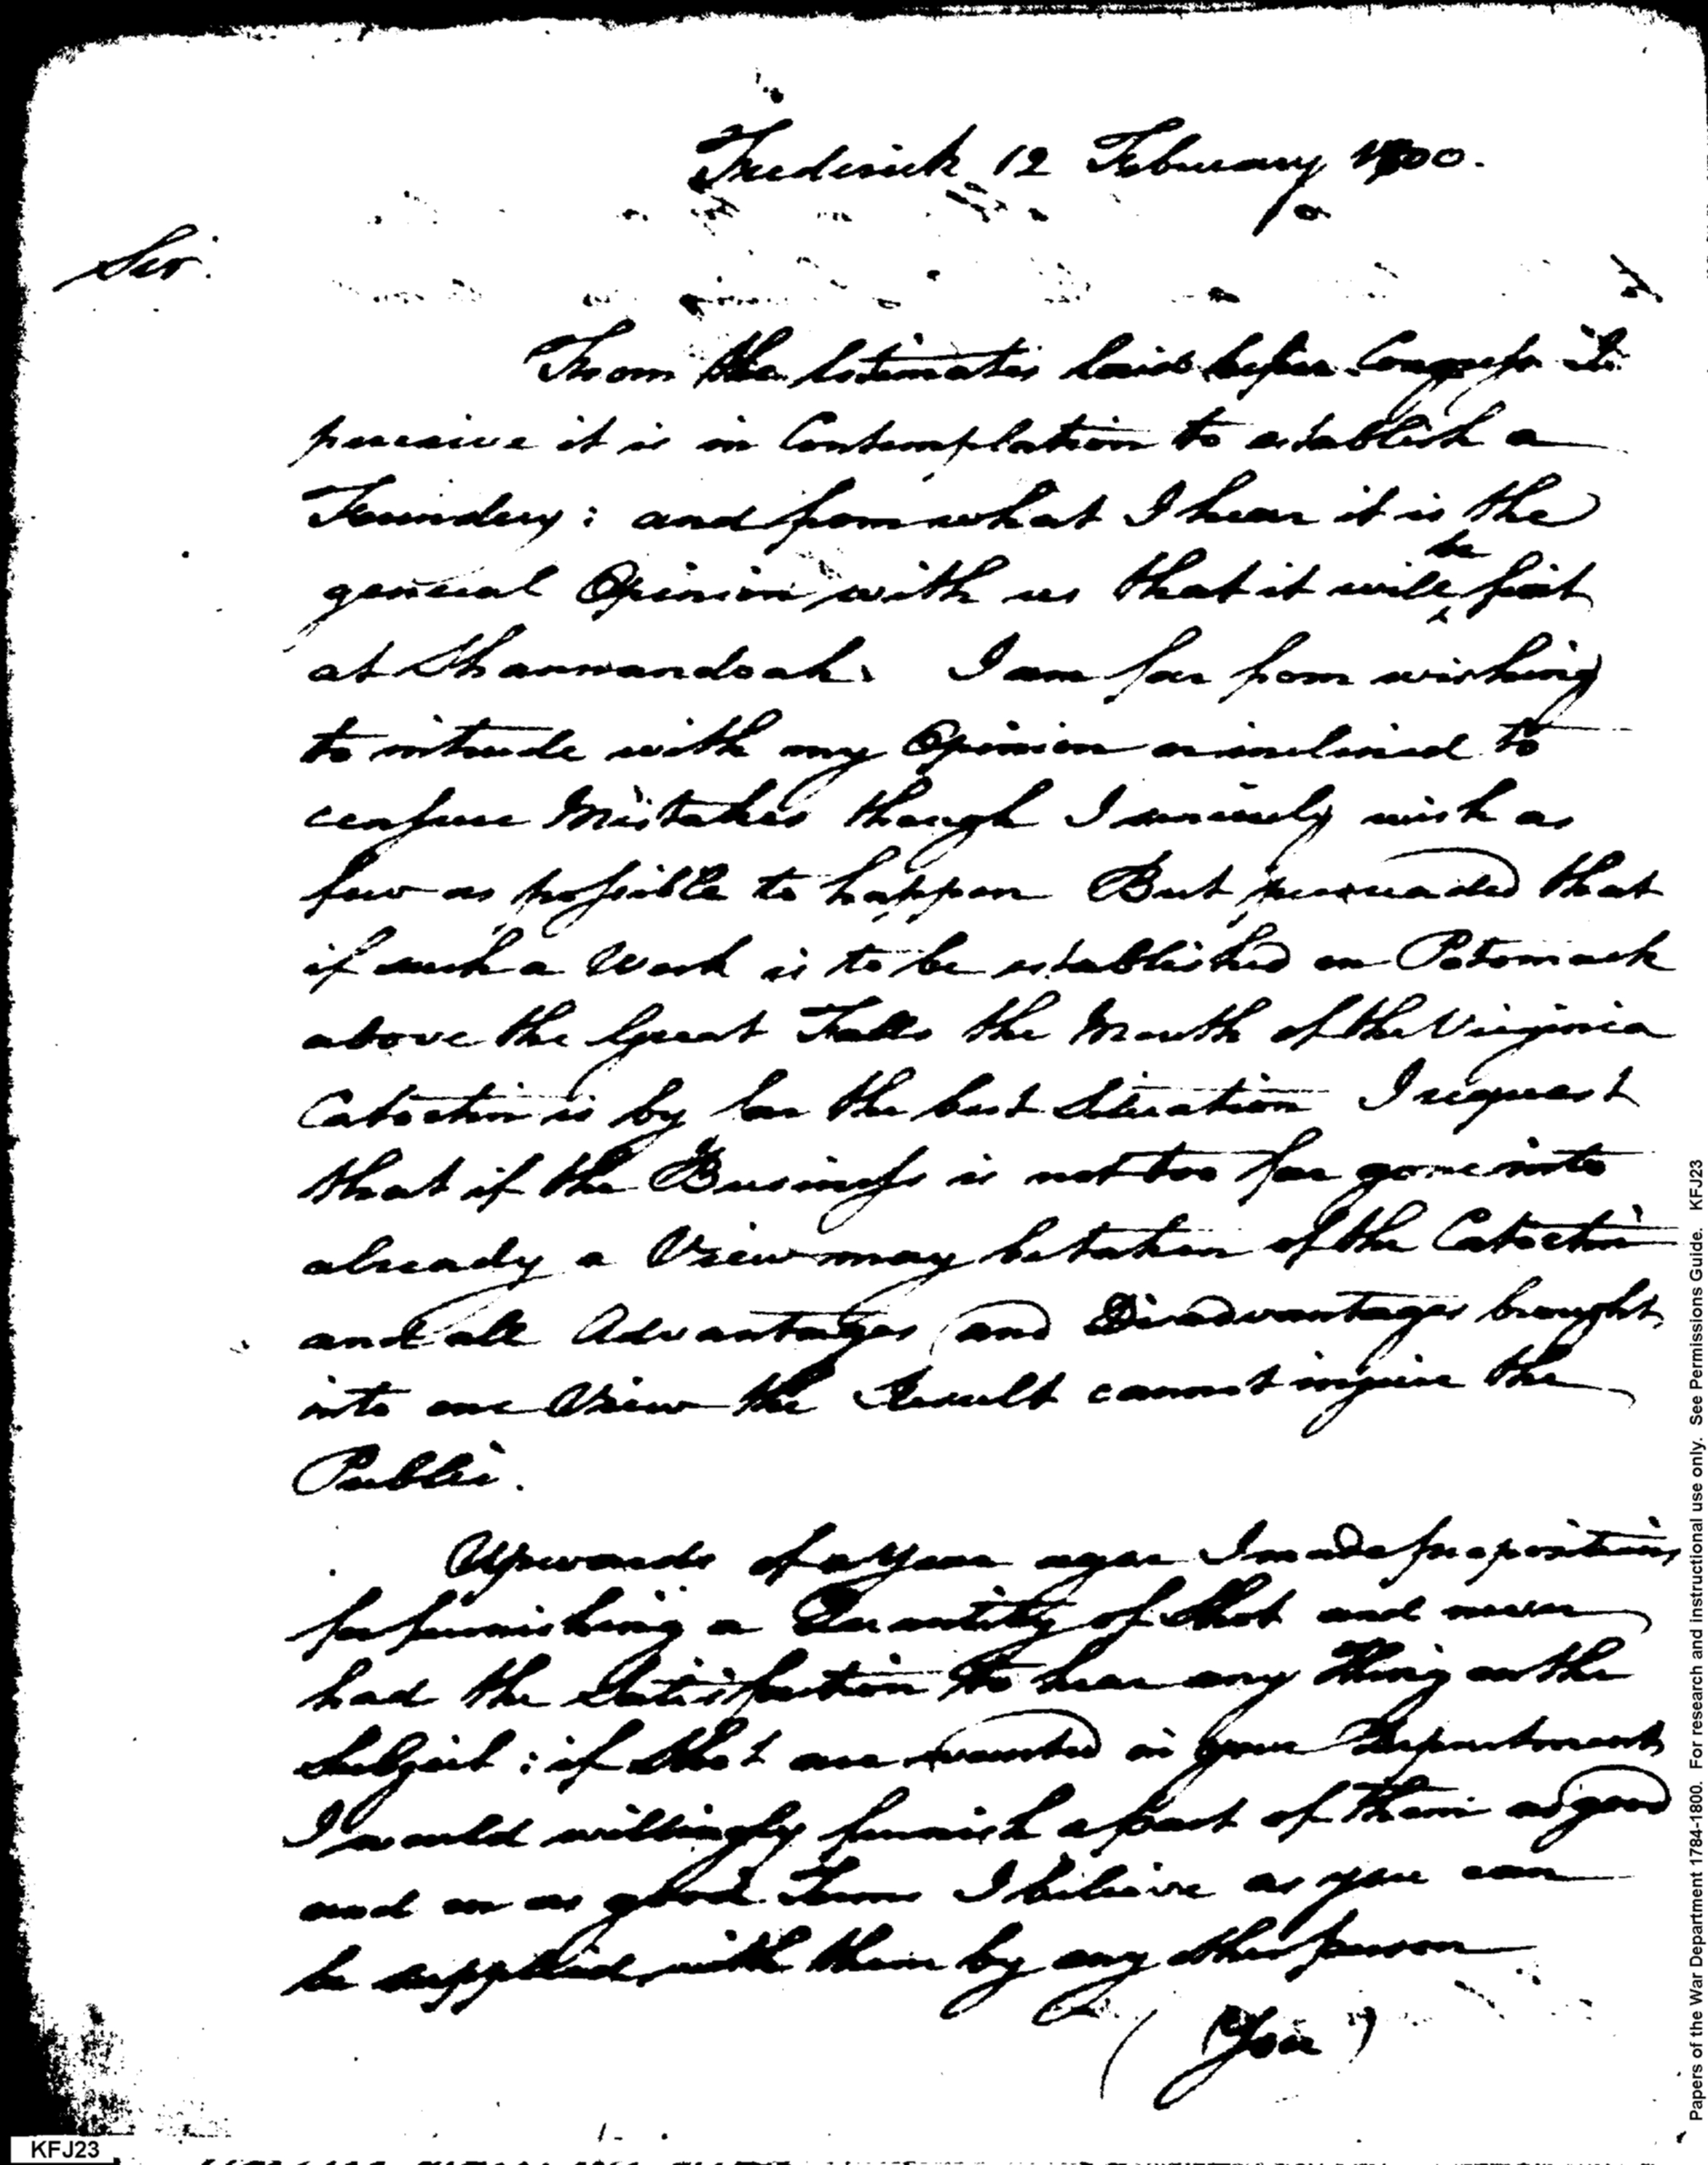 Frederick 12 February 1800.
Sir.
From the Estimates laid before Congress I
perceive it is in Contemplation to establish a
Foundery: and from what I hear it is the
be
general Opinion with us that it will fixt
at Shannandoah. I am far from wishing
to intrude with my Opinion or inclined to
censure Mistakes though I sincerely wish as
few as possible to happen But persuaded that
if such a Work is to be established on Potomack
above the Great Falls the Mouth of the Virginia
Catoctin is by far the best Situation I request
that if the Business is not too far gone into
already a View may be taken of the Catoctin
and all Advantages and Disadvantages brought
into one View the Result cannot injure the
Public.
Upwards of a Year agoe I made propositions
for furnishing a Quantity of Shot and never
had the Satisfaction to hear any thing on the
Subject: if Shot are wanted in your Department
I would willingly furnish a part of them as good
and on as good Terms I believe as you can
be supplied with them by any other person
(You)
KFJ23
Papers of the War Department 1784-1800. For research and Instructional use only. See Permissions Guide. KFJ23